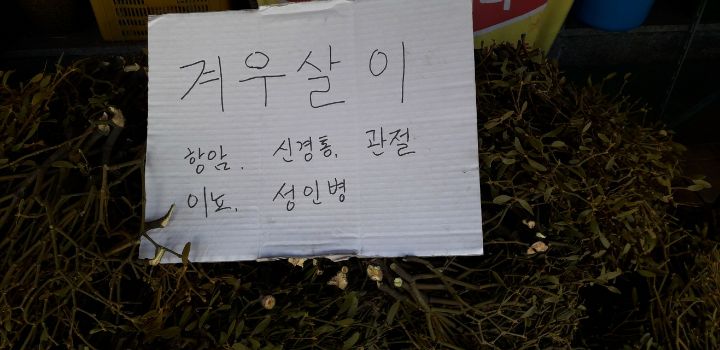 겨우살이
항암. 신경통. 관절
이뇨. 성인병